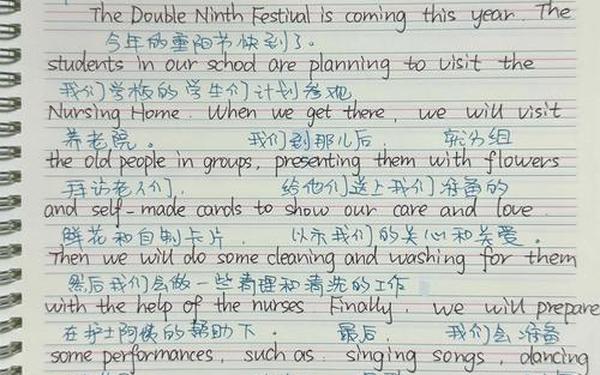 The Double Ninth Festival is coming this year. The
今年的重阳节快到了。
students in our school are planning to visit the
我们学校的学生们计划参观
Nursing Home. When we get there, we will visit
养老院。 我们到那儿后, 就分组
the old people in groups, presenting them with flowers
拜访老人们, 给他们送上我们准备的
and self-made cards to show our care and love.
鲜花和自制卡片, 以示我们的关心和关爱。
Then we will do some cleaning and washing for them
然后我们会做一些清理和清洗的工作
with the help of the nurses. Finally, we will prepare
在护士阿姨的帮助下。 最后, 我们会准备
some performances, such as singing songs, dancing